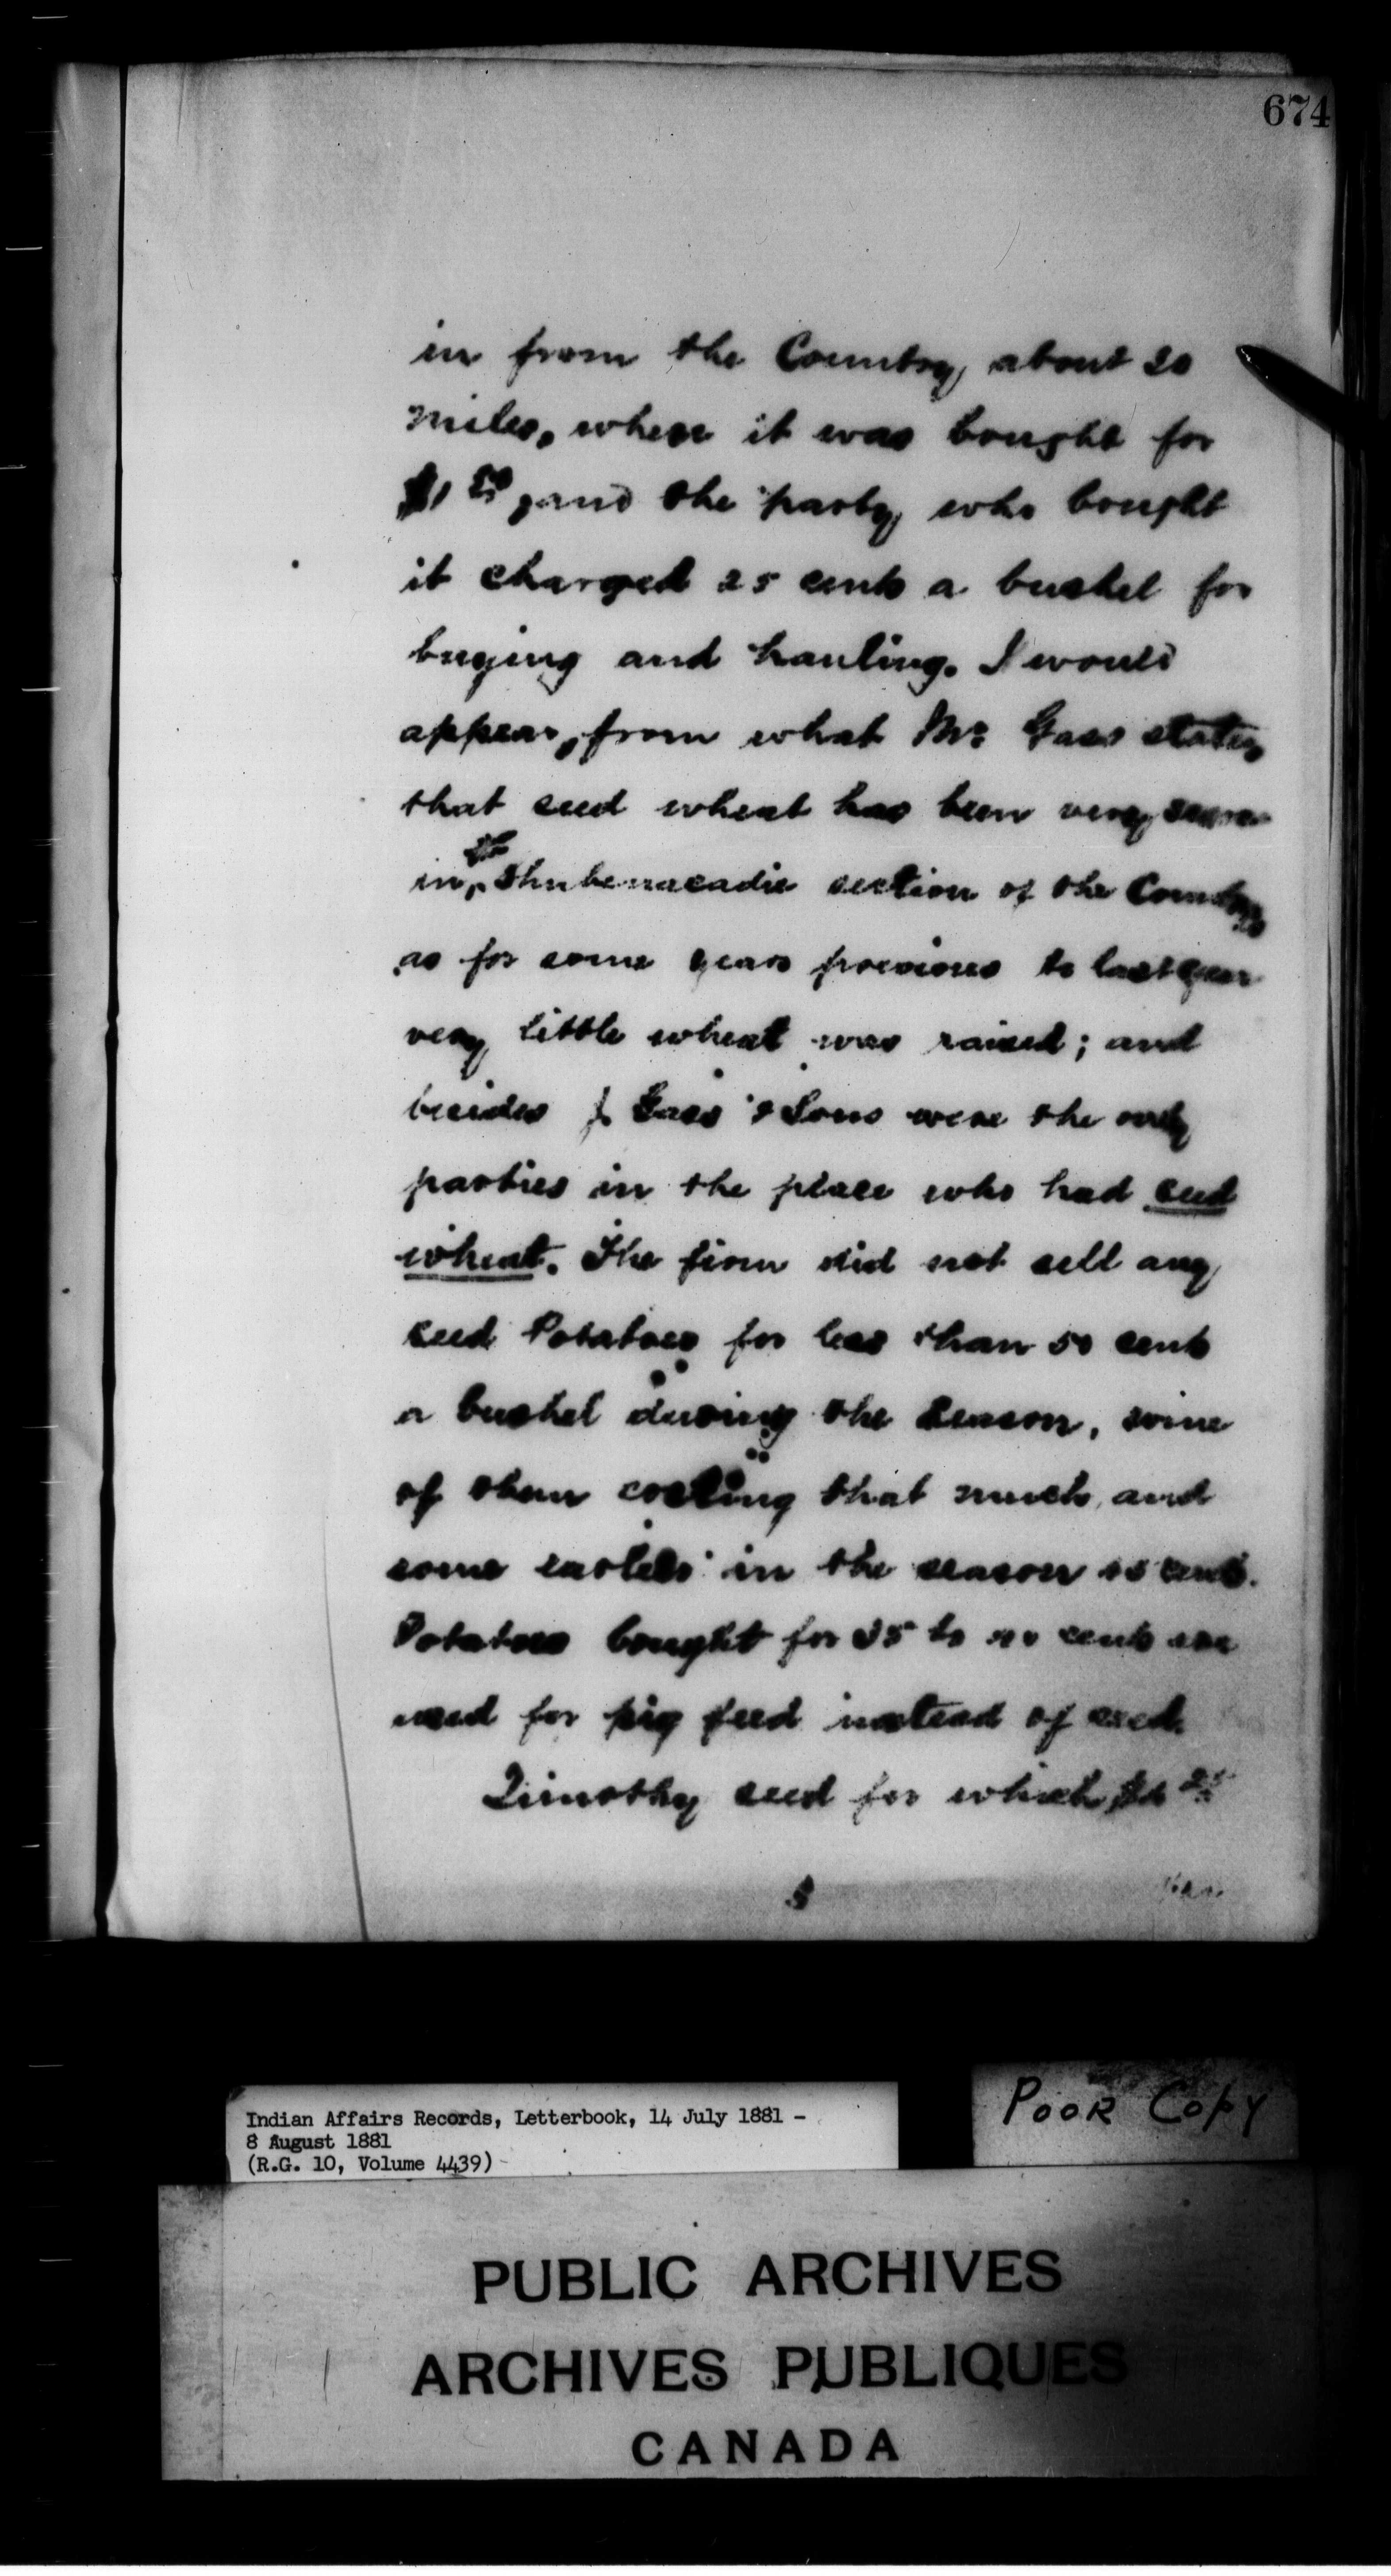 674
in from the Country about 20
miles, where it was bought for
$1 50, and the party who bought
it charged 25 cents a bushel for
buying and hauling. I would
appear, from what Mr. Gass states,
that seed wheat has been very scarce
in the Shubenacadie section of the Country
as for some years previous to last year
very little wheat was raised; and
besides J. Gass & Sons were the only
parties in the place who had seed
wheat. The firm did not sell any
seed Potatoes for less than 50 cents
a bushel during the season, some
of them costing that much, and
some earlier in the season cents.
Potatoes bought for to cents are
used for pig feed instead of seed.
Timothy seed for which
Indian Affairs Records, Letterbook, 14 July 1881 -
8 August 1881
(R.G. 10, Volume 4439)
POOR COPY
PUBLIC ARCHIVES
ARCHIVES PUBLIQUES
CANADA